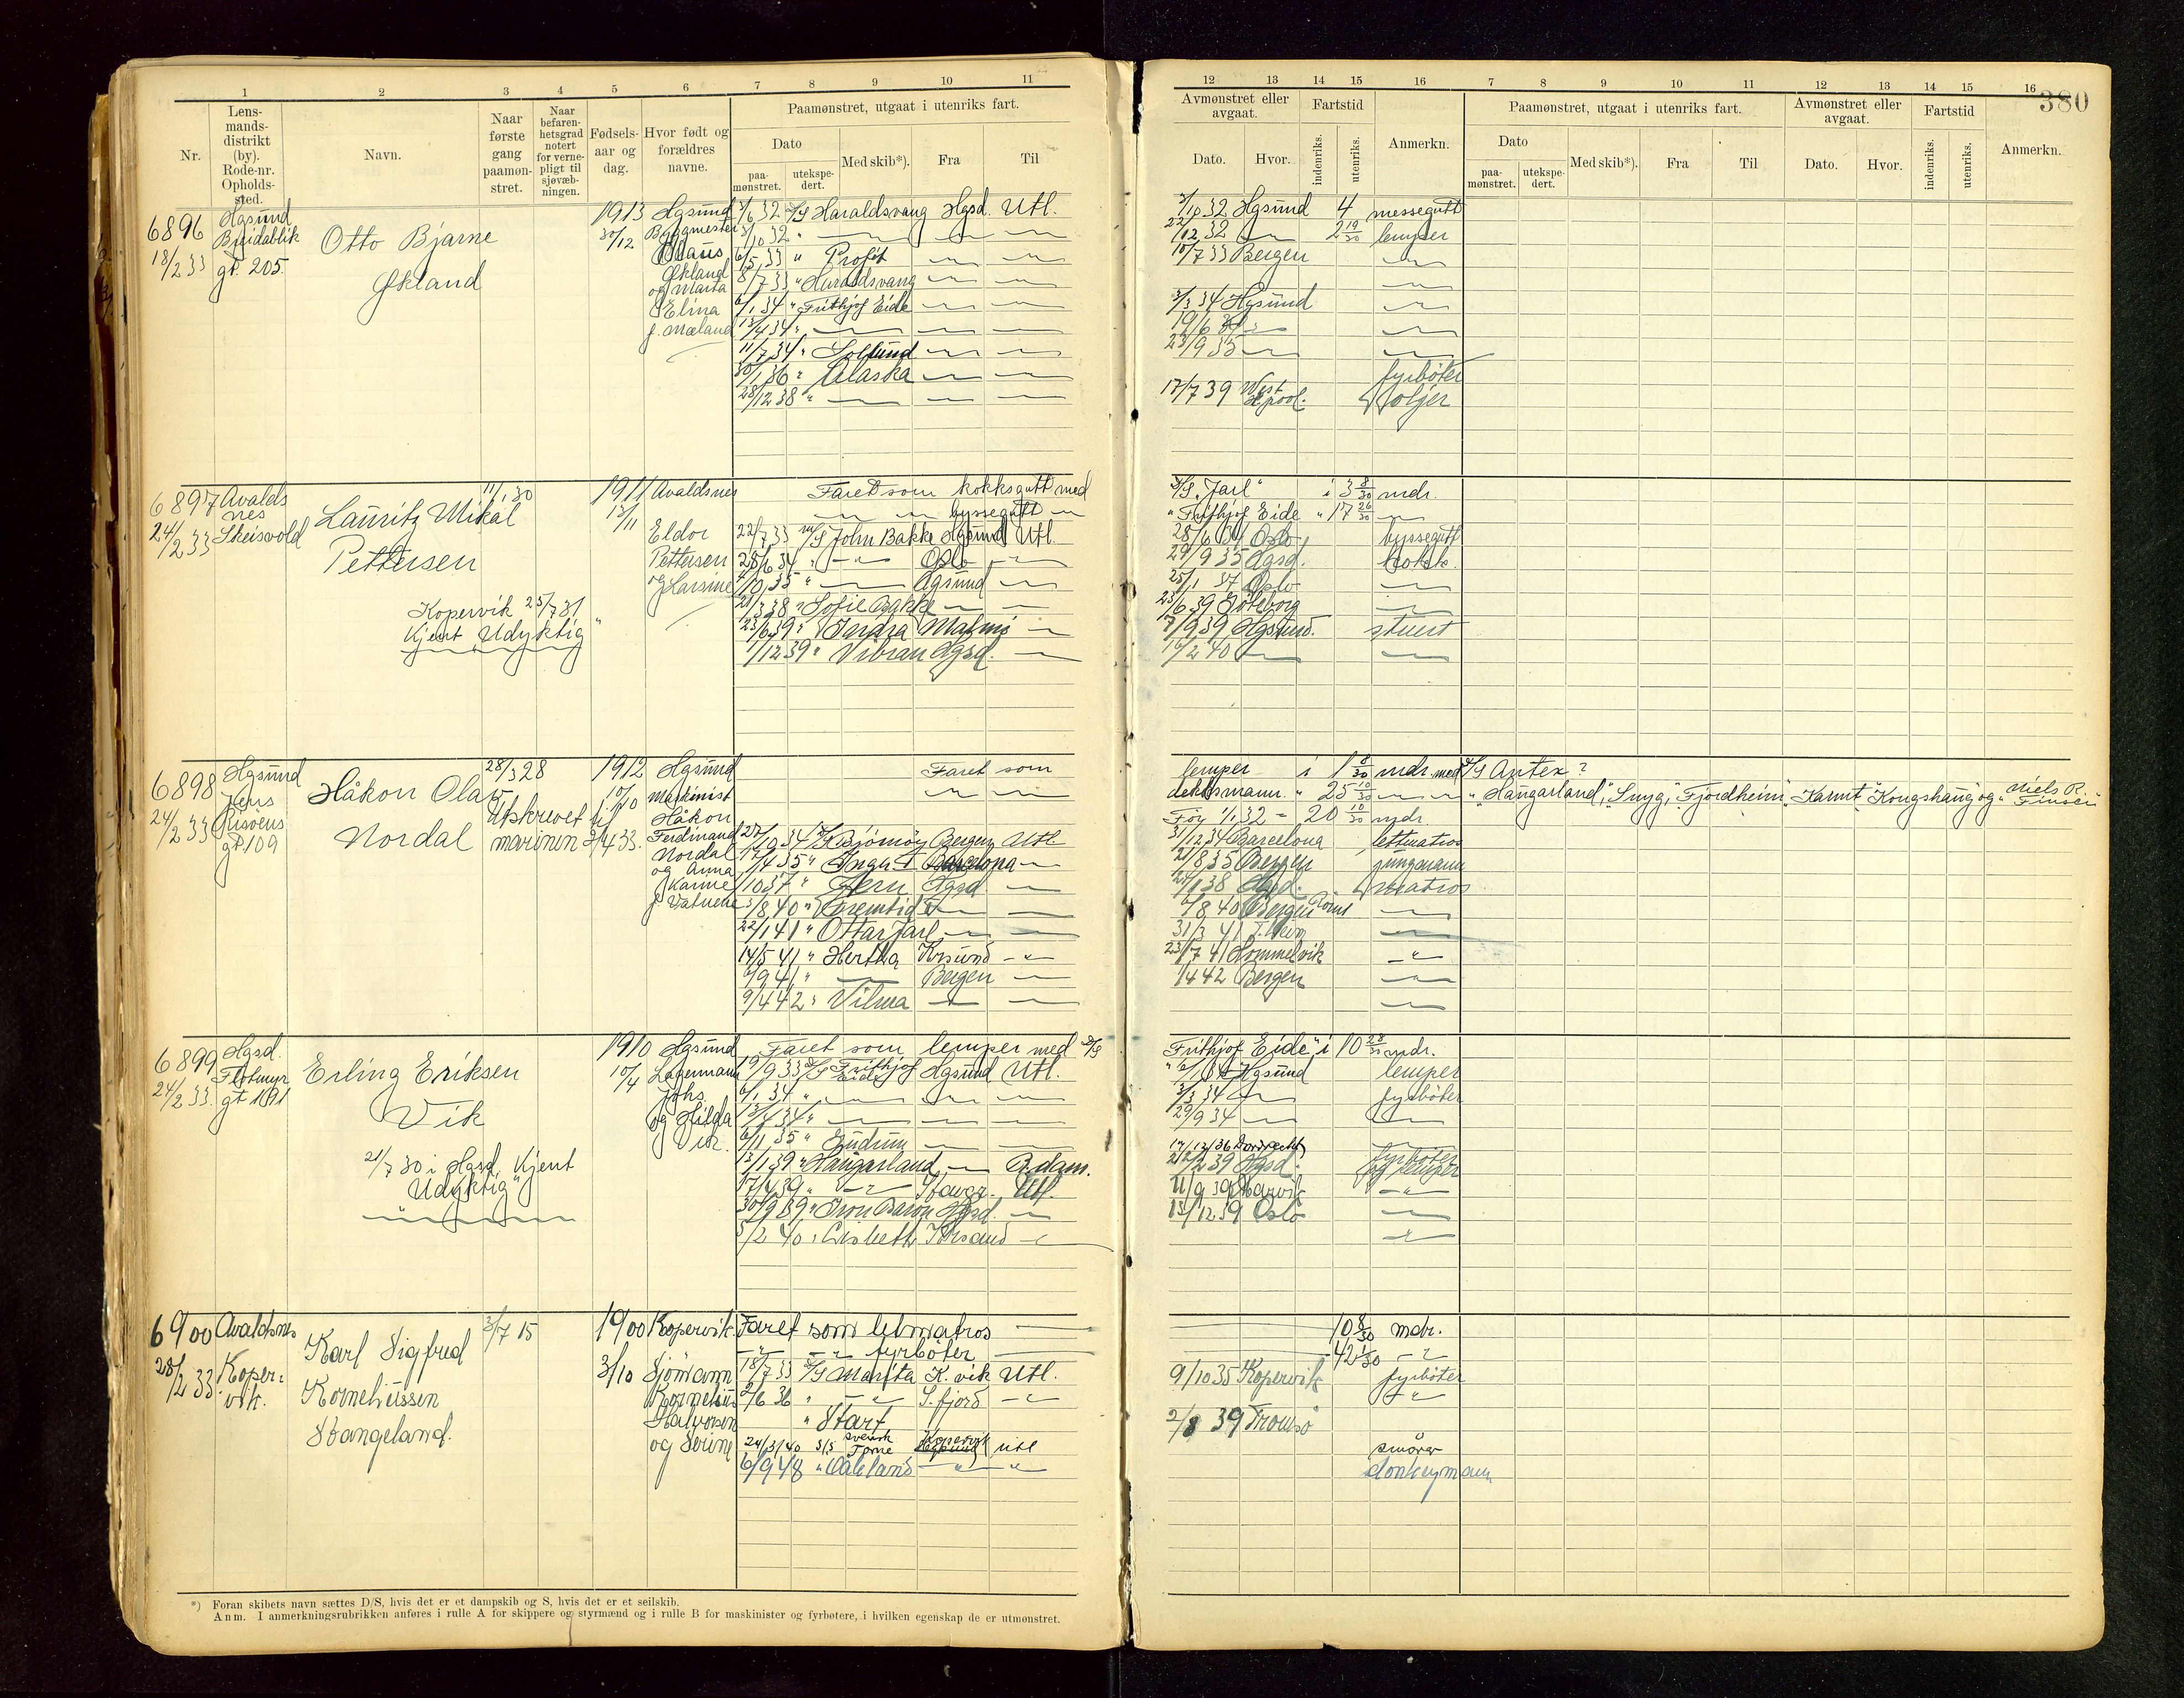 1 2 3 4 5 6 7 8 9 10 11
Nr.
Lens-
mands-
distrikt
(by).
Rode-nr.
Opholds-
sted.
Navn.
Naar
første
gang
paamøn-
stret.
Naar
befaren-
hetsgrad
notert
for verne-
pligt til
sjøvæb-
ningen.
Fødsels-
aar og
dag.
Hvor født og
forældres
navne.
Paamønstret, utgaat i utenriks fart.
Dato
paa-
mønstret.
utekspe-
dert.
Med skib*).
Fra
Til
12 13 14 15 16 7 8 9 10 11 12 13 14 15 16
380
Avmønstret eller
avgaat.
Dato.
Hvor.
Fartstid
indenriks.
utenriks.
Anmerkn.
Paamønstret, utgaat i utenriks fart.
Dato
paa-
mønstret.
utekspe-
dert.
Med skib*).
Fra
Til
Avmønstret eller
avgaat.
Dato.
Hvor.
Fartstid
indenriks.
utenriks.
Anmerkn.
6896
18/2 33
Hgsund
Breidablik
gt. 205.
Otto Bjarne
Økland
1913
30/12
Hgsund
Byggmester
Økland
og Marta
Elina
f. Mæland
3/6 32 D/S Haraldsvang Hgsd. Utl.
3/10 32 "
6/5 33 " Profit
8/7 33 " Haraldsvang
6/1 34 " Frithjof Eide
13/4 34 "
11/7 34 " Solsund
30/1 36 " Alaska
28/12 38 "
3/10 32 Hgsund 4 messegutt
22/12 32 2 19/30 lemper
10/7 33 Bergen
3/3 34 Hgsund
19/6 34
23/9 35
fyrbøter
17/7 39 West Hpool. Oljer
6897
24/2 33
Avalds
nes
Skeisvold
Lauritz Mikal
Pettersen
Kopervik 25/7 31
Kjent "Udyktig"
11/1 30
1911
13/11
Avaldsnes
Eldor
Pettersen
og Larsine
Faret som kokksgutt med
byssegutt
22/7 33 M/S John Bakke Hgsund Utl.
28/6 34 " Oslo
4/10 35 " Hgsund
21/3 38 " Sofie Bakke
23/6 39 " Jardra Malmö
1/12 39 " Vibran Hgsd.
D/S "Jarl" i 3 8/30 mdr.
" Frithjof Eide " 17 26/30
28/6 34 Oslo byssegutt
29/9 35 Hgsd. kokk.
25/1 37 Oslo
23/6 39 Göteborg
7/9 39 Hgsund. stuert
16/2 40
6898
24/2 33
Hgsund
Jens
Risøens
gt. 109
Håkon Olav
Nordal
28/3 28
Utskrevet til
marinen 3/4 33.
1912
10/10
Hgsund
Maskinist
Håkon
Ferdinand
Nordal
og Anna
Karine
f. Vatnene
Faret som
27/10 34 D/S Bjørnøy Bergen Utl.
17/4 35 " Inger I Barcelona
/10 37 " Jern Hgsd
3/8 40 " Fremtid
22/1 41 " Ottar Jarl
14/5 41 " Hertha Krsund
/9 41 " Bergen
9/4 42 " Vilma
lemper i 1 8/30 mdr. med D/S Antex?
dekksmann. " 25 10/30 " "Haugarland", "Snyg", "Fjordheim", "Karmt", "Kongshaug" og "Niels R. Finsen"
Før 1/1 32 = 20 10/30 mdr
31/12 34 Barcelona lettmatros
21/8 35 Bergen jungmann
24/1 38 Hgsd. matros
/8 40 Bergen
31/3 41 T.heim
23/7 41 Hommelvik
1/4 42 Bergen
6899
24/2 33
Hgsd.
Flotmyr
gt. 191
Erling Eriksen
Vik
21/7 30 i Hgsd. Kjent
"Udyktig"
1910
10/4
Hgsund
Lagermann
Johs.
og Hilda
Vik.
Faret som lemper med D/S
19/9 33 D/S Frithjof Eide Hgsund Utl.
6/1 34 "
13/4 34 "
6/11 35 " Gudrun
13/1 39 " Haugarland A.dam.
17/4 39 " Stavgr. Utl.
30/9 39 " Iron Baron Hgsd.
5/2 40 " Lisbeth Krsand
"Frithjof Eide" i 10 28/30 mdr.
Hgsund lemper
3/3 34 fyrbøter
29/9 34
17/12/36 Dordrecht
21/2 39 Hgsd. fyrbøter
og lemper
11/9 39 Narvik
13/12 39 Oslo
6900
28/2 33.
Avaldsnes
Koper-
vik.
Karl Sigfred
Korneliussen
Stangeland.
3/7 15
1900
3/10
Kopervik.
Sjömann
Kornelius
Halvorsen
og Serine
Faret som letmatros
fyrböter
18/7 33 D/S Marita K.vik Utl.
2/6 36 " S. fjord
" Start
24/3/40 S/S svensk Torne Kopervik utl
6/9 48 " Vaaland " "
10 8/30 mdr.
42 1/30
9/10 35 Kopervik fyrböter
2/8 39 Tromsö
smörer
donkeymann
*) Foran skibets navn sættes D/S, hvis det er et dampskib og S, hvis det er et seilskib.
Anm. I anmerkningsrubrikken anføres i rulle A for skippere og styrmænd og i rulle B for maskinister og fyrbøtere, i hvilken egenskap de er utmønstret.